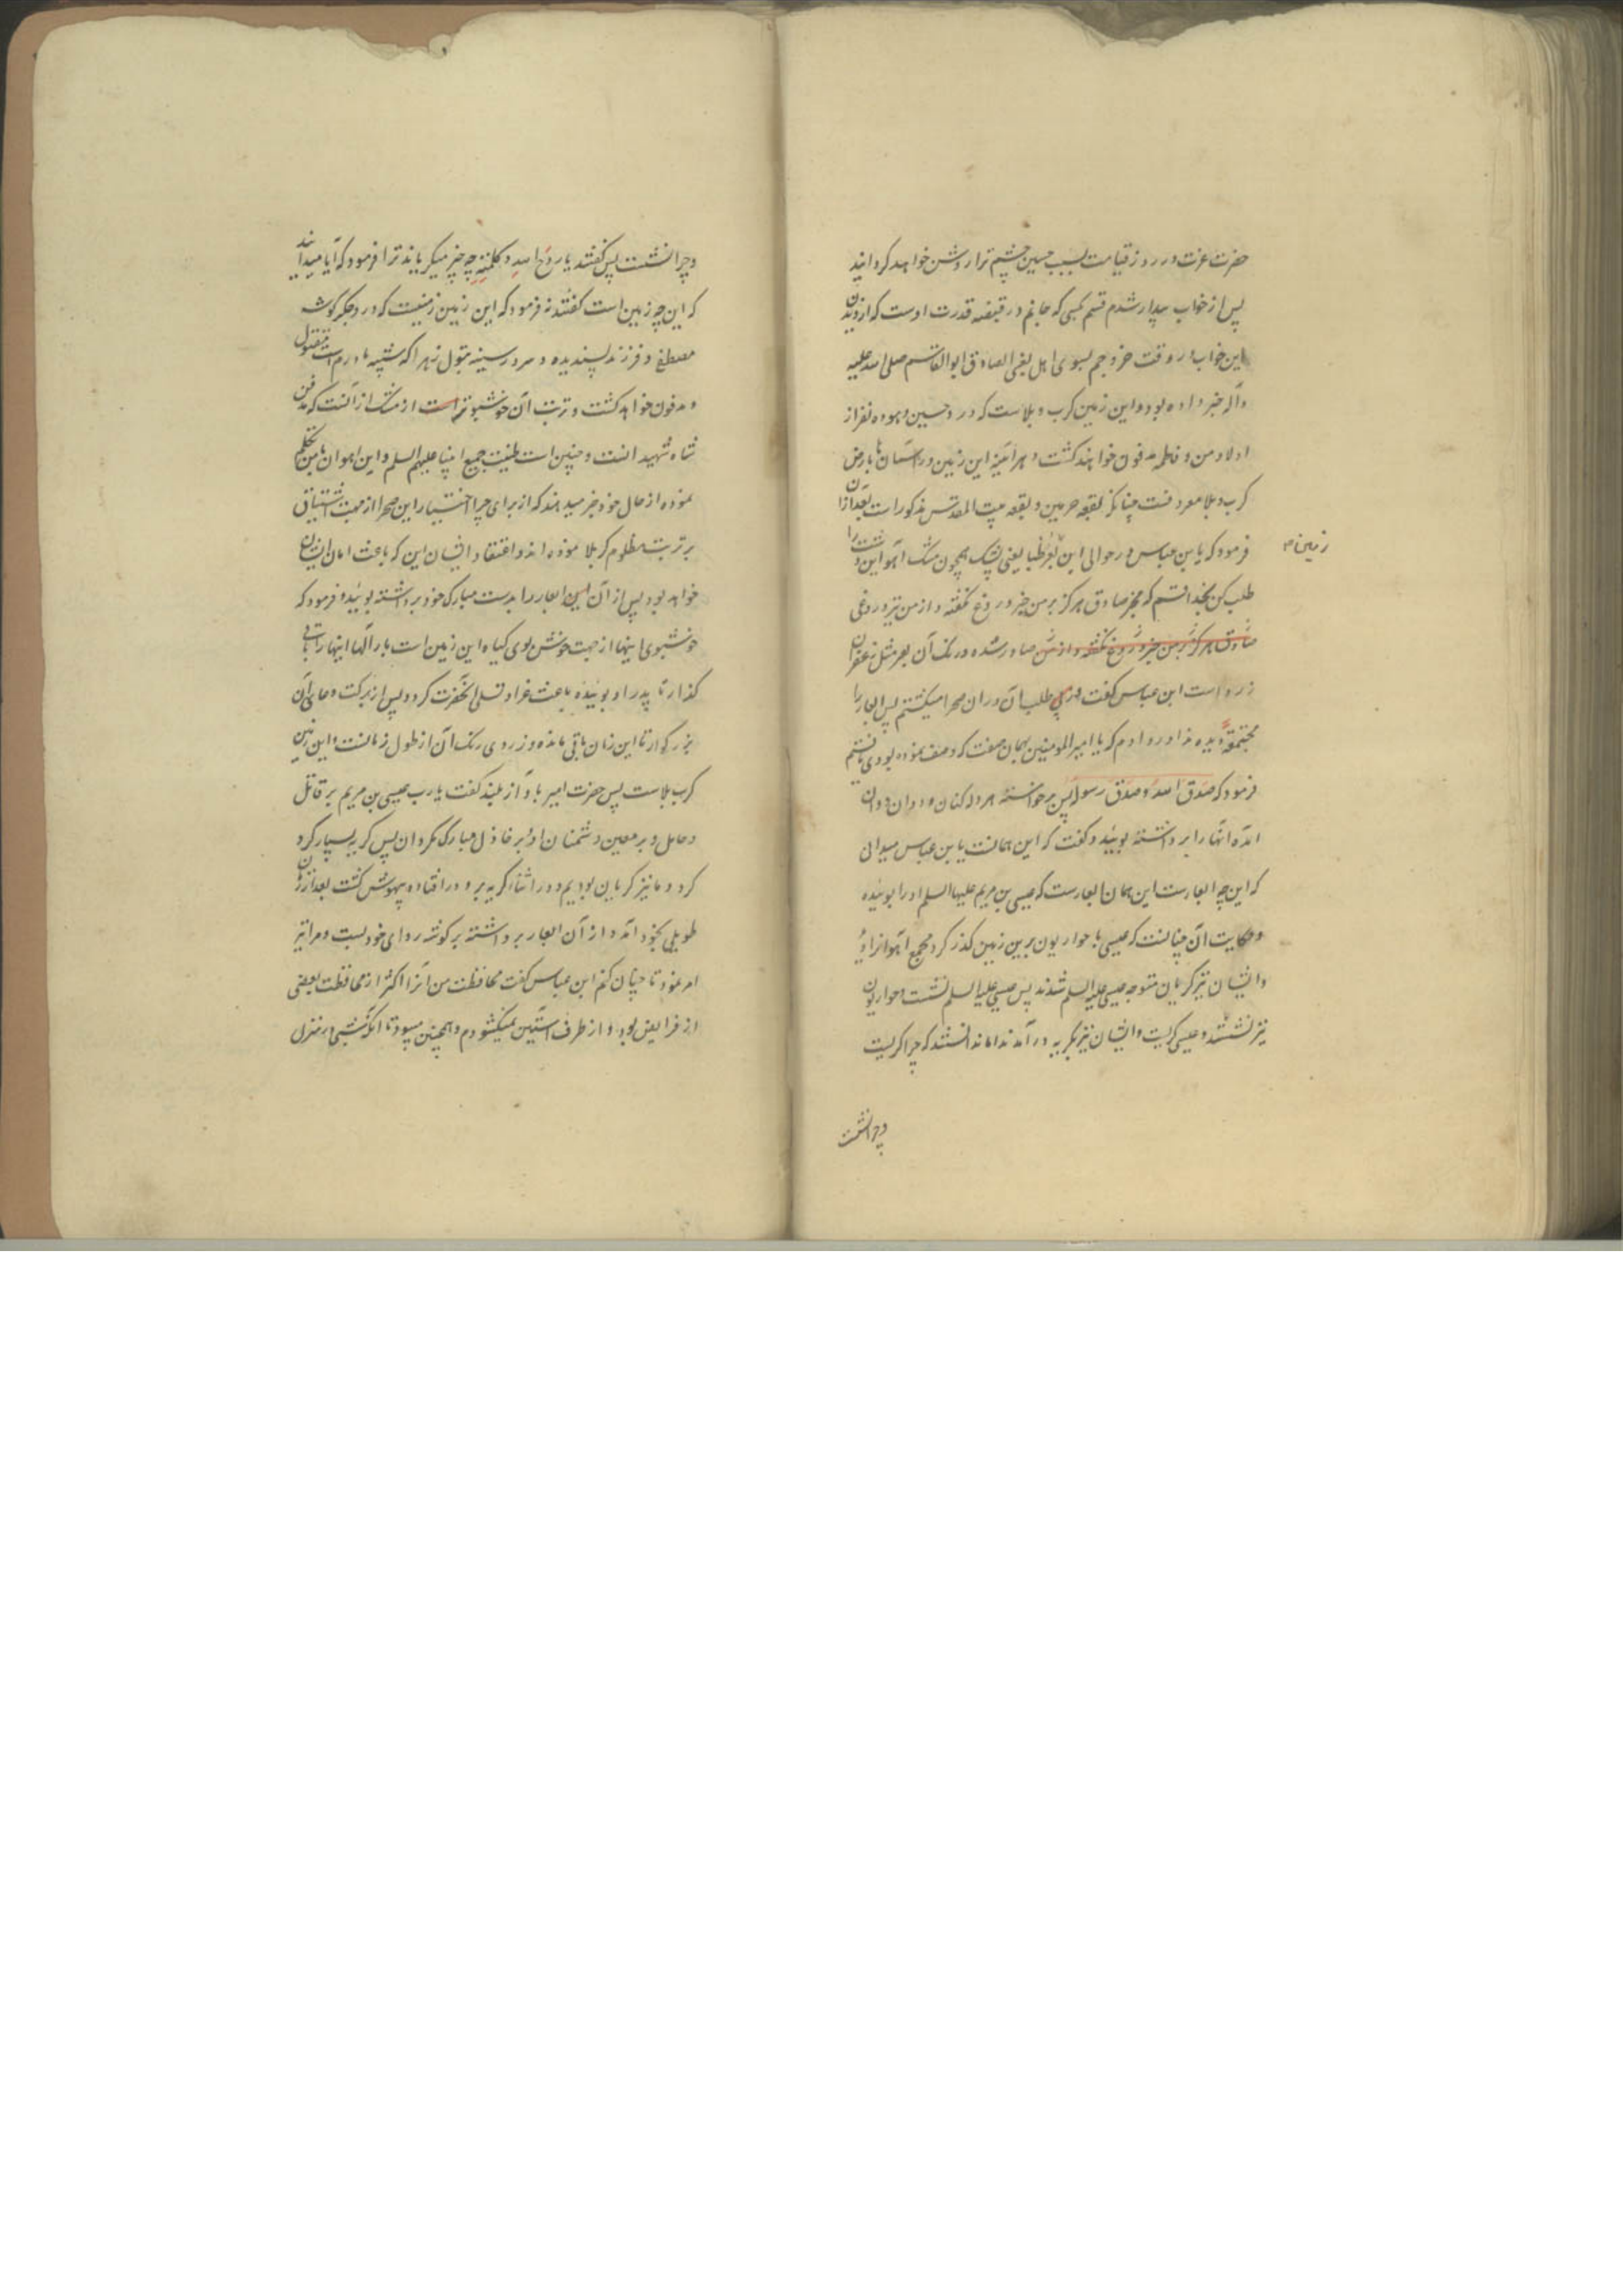 حضرت عزت در روز قیامت بسبب حسین چشم ترا روشن خواهد کردانید
پس از خواب بیدار شدم قسم بکسی که جانم در قبضه قدرت اوست که از دیدن
این خواب در وقت خروجم بسوی اهل بغی الصادق ابو القاسم صلی الله علیه
وآله خبر داده بود و این زمین کرب و بلاست که درو حسین و هوده نفر از
اولاد من و فاطمه مدفون خواهند کشت و هر آینه این زمین در آسمان ها بارض
کرب و بلا معروفست چنانکه بقعه حرمین و بقعه بیت المقدس مذکور است بعد ازان
فرمود که یابن عباس در حوالی این بعر ظبا یعنی پشک همچون مشک آهو این دشت را
زمین
طلب کن بخدا قسم که مخبر صادق هرکز بر من خبر دروغ نکفته و از من نیز دروغی
صادق هرکز بر من خبر دروغ نکفته و از من صادر شده و رنک آن بعر مثل زعفران
زرد است ابن عباس کفت در پی طلب آن دران صحرا میکشتم پس ابعار را
مجتمعه دیده ندا در دادم که یا امیر المومنین بهمان صفت که وصف نموده بودی یافتم
فرمود که صدق الله و صدق رسوله پس برخواسته هروله کنان و دوان دوان
آمده آنها را برداشته بوئید و کفت که این همانست یابن عباس میدانی
که این چه ابعارست این همان ابعارست که عیسی بن مریم علیها السلم او را بوئیده
و حکایت آن چنانست که عیسی با حواریون برین زمین کذر کرد مجمع آهو از او
و ایشان نیز کریان متوجه عیسی علیه السلم شدند پس عیسی علیه السلم نشست و حواریون
نیز نشستند و عیسی کریست و ایشان نیز بکریه در آمدند اما ندانستند که چرا کریست
و چرا نشست
و چرا نشست پس کفتند یا روح الله و کلمته چه چیز میکریاند ترا فرمود که آیا میدانید
که این چه زمین است کفتند نه فرمود که این زمین زمینیست که درو جکر کوشه
مصطفی و فرزند پسندیده و سرور سینه بتول زهرا که شبیه مادرم است مقتول
و مدفون خواهد کشت و تربت آن خوشبوتر است از مشک از آنست که مدفن
شاه شهید انست و چنین است طینت جمیع انبیا علیهم السلم و این آهوان بامن تکلم
نموده از حال خود خبر میدهند که از برای چرا اختیار این صحرا از جهت اشتیاق
بر تربت مظلوم کربلا نموده اند و اعتقاد ایشان این که باعث امان ایشان
خواهد بود پس از آن این ابعار را بدست مبارک خود برداشته بوئید و فرمود که
خوشبوی اینها از جهت خوش بوی کیاه این زمین است بار الها اینها را باقی
کذار تا پدر او بوئیده باعث عزا و تسلی آنحضرت کردد پس از برکت دعای آن
بزرکوار تا این زمان باقی مانده و زردی رنک آن از طول زمانست و این زمین
کرب بلاست پس حضرت امیر باواز بلند کفت یا رب عیسی بن مریم بر قاتل
و حامل و بر معین دشمنان او و بر خاذل مبارک مکردان پس کریه بسیار کرد
کرد و ما نیز کریان بودیم و در اثناء کریه برو در افتاده بیهوش کشت بعد از زمان
طویلی بخود آمد و از آن ابعار برداشته بر کوشه ردای خود بست و مرا نیز
امر نمود تا چنان کنم ابن عباس کفت محافظت من آنرا اکثر از محافظت بعضی
از فرایض بود و از طرف آستین نمیکشودم و همچنین میبود تا آنکه شبی در منزل